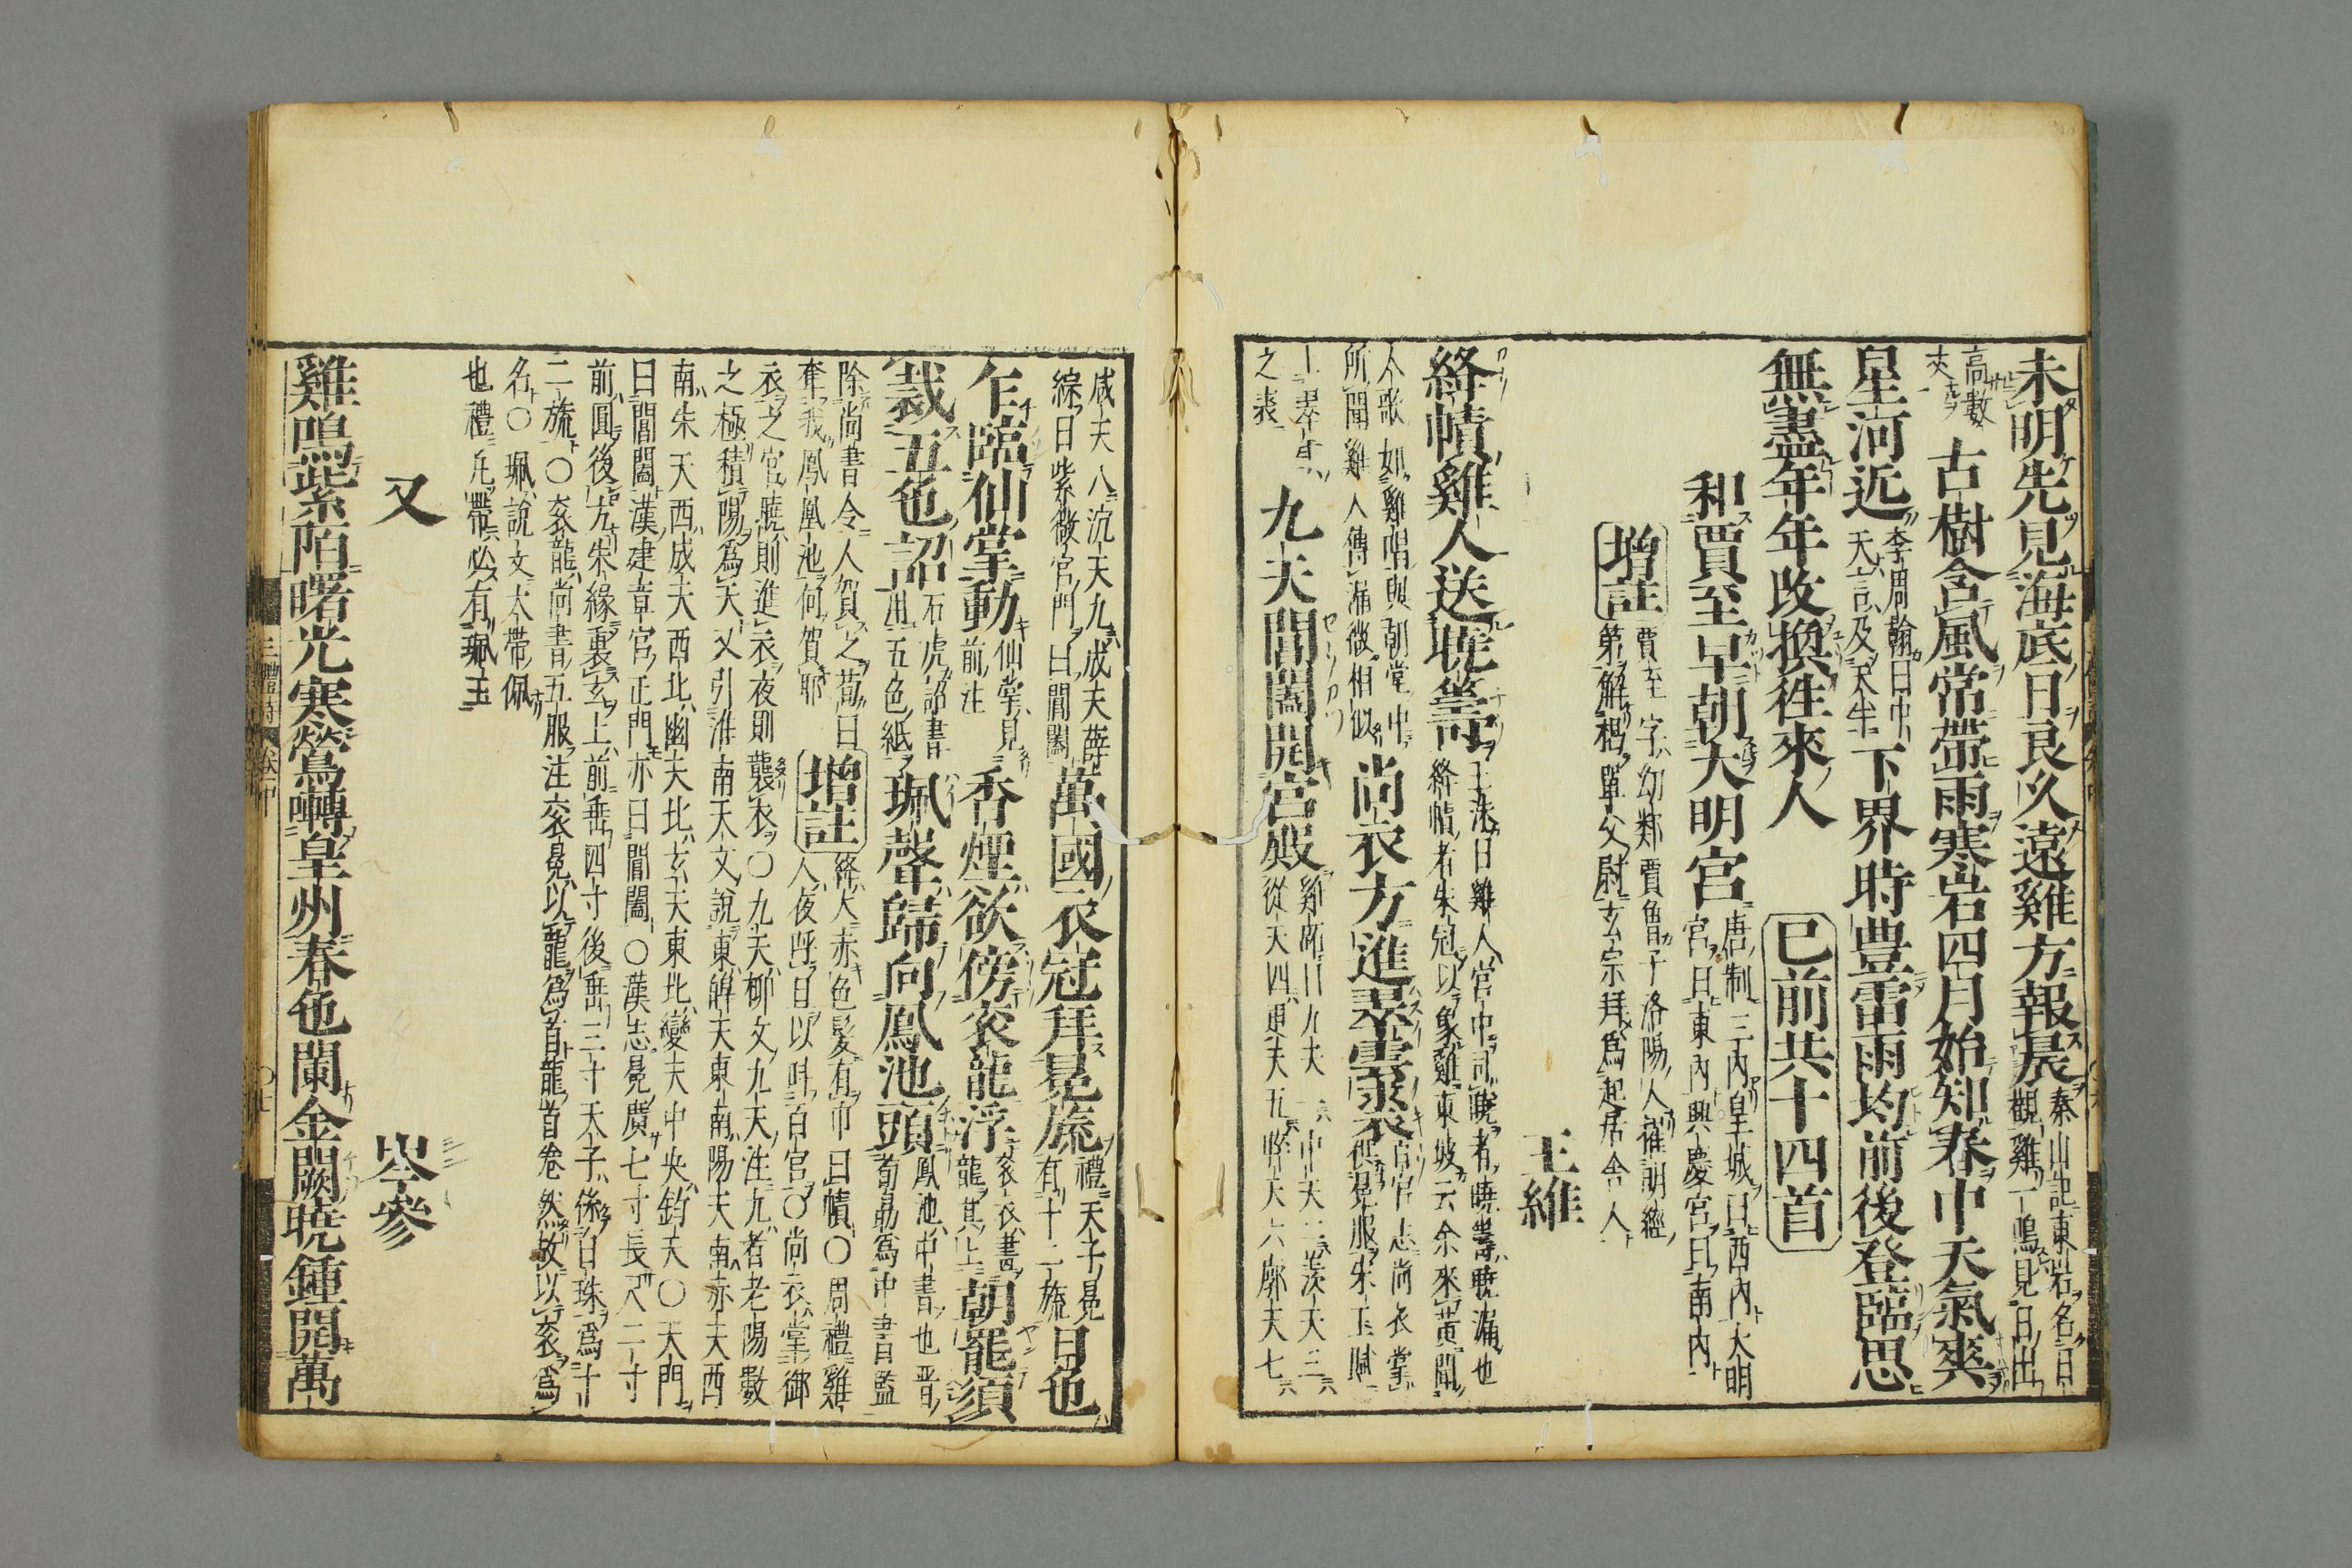 未明先見海底日良久遠雞方報晨秦山記東岩名日
觀雞一鳴見日出
高數
丈古樹含風常帶雨寒岩四月始知春中天氣爽
星河近李周翰曰中
天言及天半下界時豊雷雨均前後登臨思
無盡年年改換往來人已前共十四首
和賈至早朝大明宮唐制三內皇城曰西內大明
宮曰東內興慶宮曰南內
增註賈至字幼鄰賈曾子洛陽人擢明經
第解褐單父尉玄宗拜爲起居舍人
王維
絳幘雞人送曉籌王洙曰雞人宮中司曉者曉籌曉漏也
絳幘者朱冠以象雞東坡云余來黃聞
人歌如雞唱與朝堂中
所聞雞人傳漏微相似尚衣方進翠雲裘百官志尚衣掌
供冕服宋玉賦
上翠雲
之裘九天閶闔開宮殿
從天四更天五睟天六廓天七
咸天八沉天九成天薛
綜曰紫微宮門曰閶闔萬國衣冠拜冕旒禮天子冕
有十二旒日色
乍臨仙掌動仙掌見
前注香煙欲傍衮龍浮衮衣畫
龍其上朝罷須
裁五色詔石虎詔書
用五色紙珮聲歸向鳳池頭鳳池中書也晋
荀勗爲中書監
除尚書令人賀之荀曰
奪我鳳凰池何賀耶增註絳大赤色髮有巾曰幘〇周禮雞
人夜呼旦以叫百官〇尚衣掌御
衣之官曉則進衣夜則襲衣〇九天柳文九天注九者老陽數
之極積陽爲天又引淮南天文說東皥天東南陽天南赤天西
南朱天西成天西北幽天北玄天東北變天中央鈞天〇天門
曰閶闔漢建章宮正門亦曰閶闔〇漢志冕廣七寸長尺二寸
前圓後方朱緣裏玄上前垂四寸後垂三寸天子係白珠爲十
二旒〇衮龍尚書五服注衮冕以龍爲首龍首卷然故以衮爲
名〇珮說文大帶佩
也禮凡帶必有珮玉
又
岑參
雞鳴紫陌曙光寒鶯囀皇州春色闌金闕曉鍾開萬
三體詩
卷中